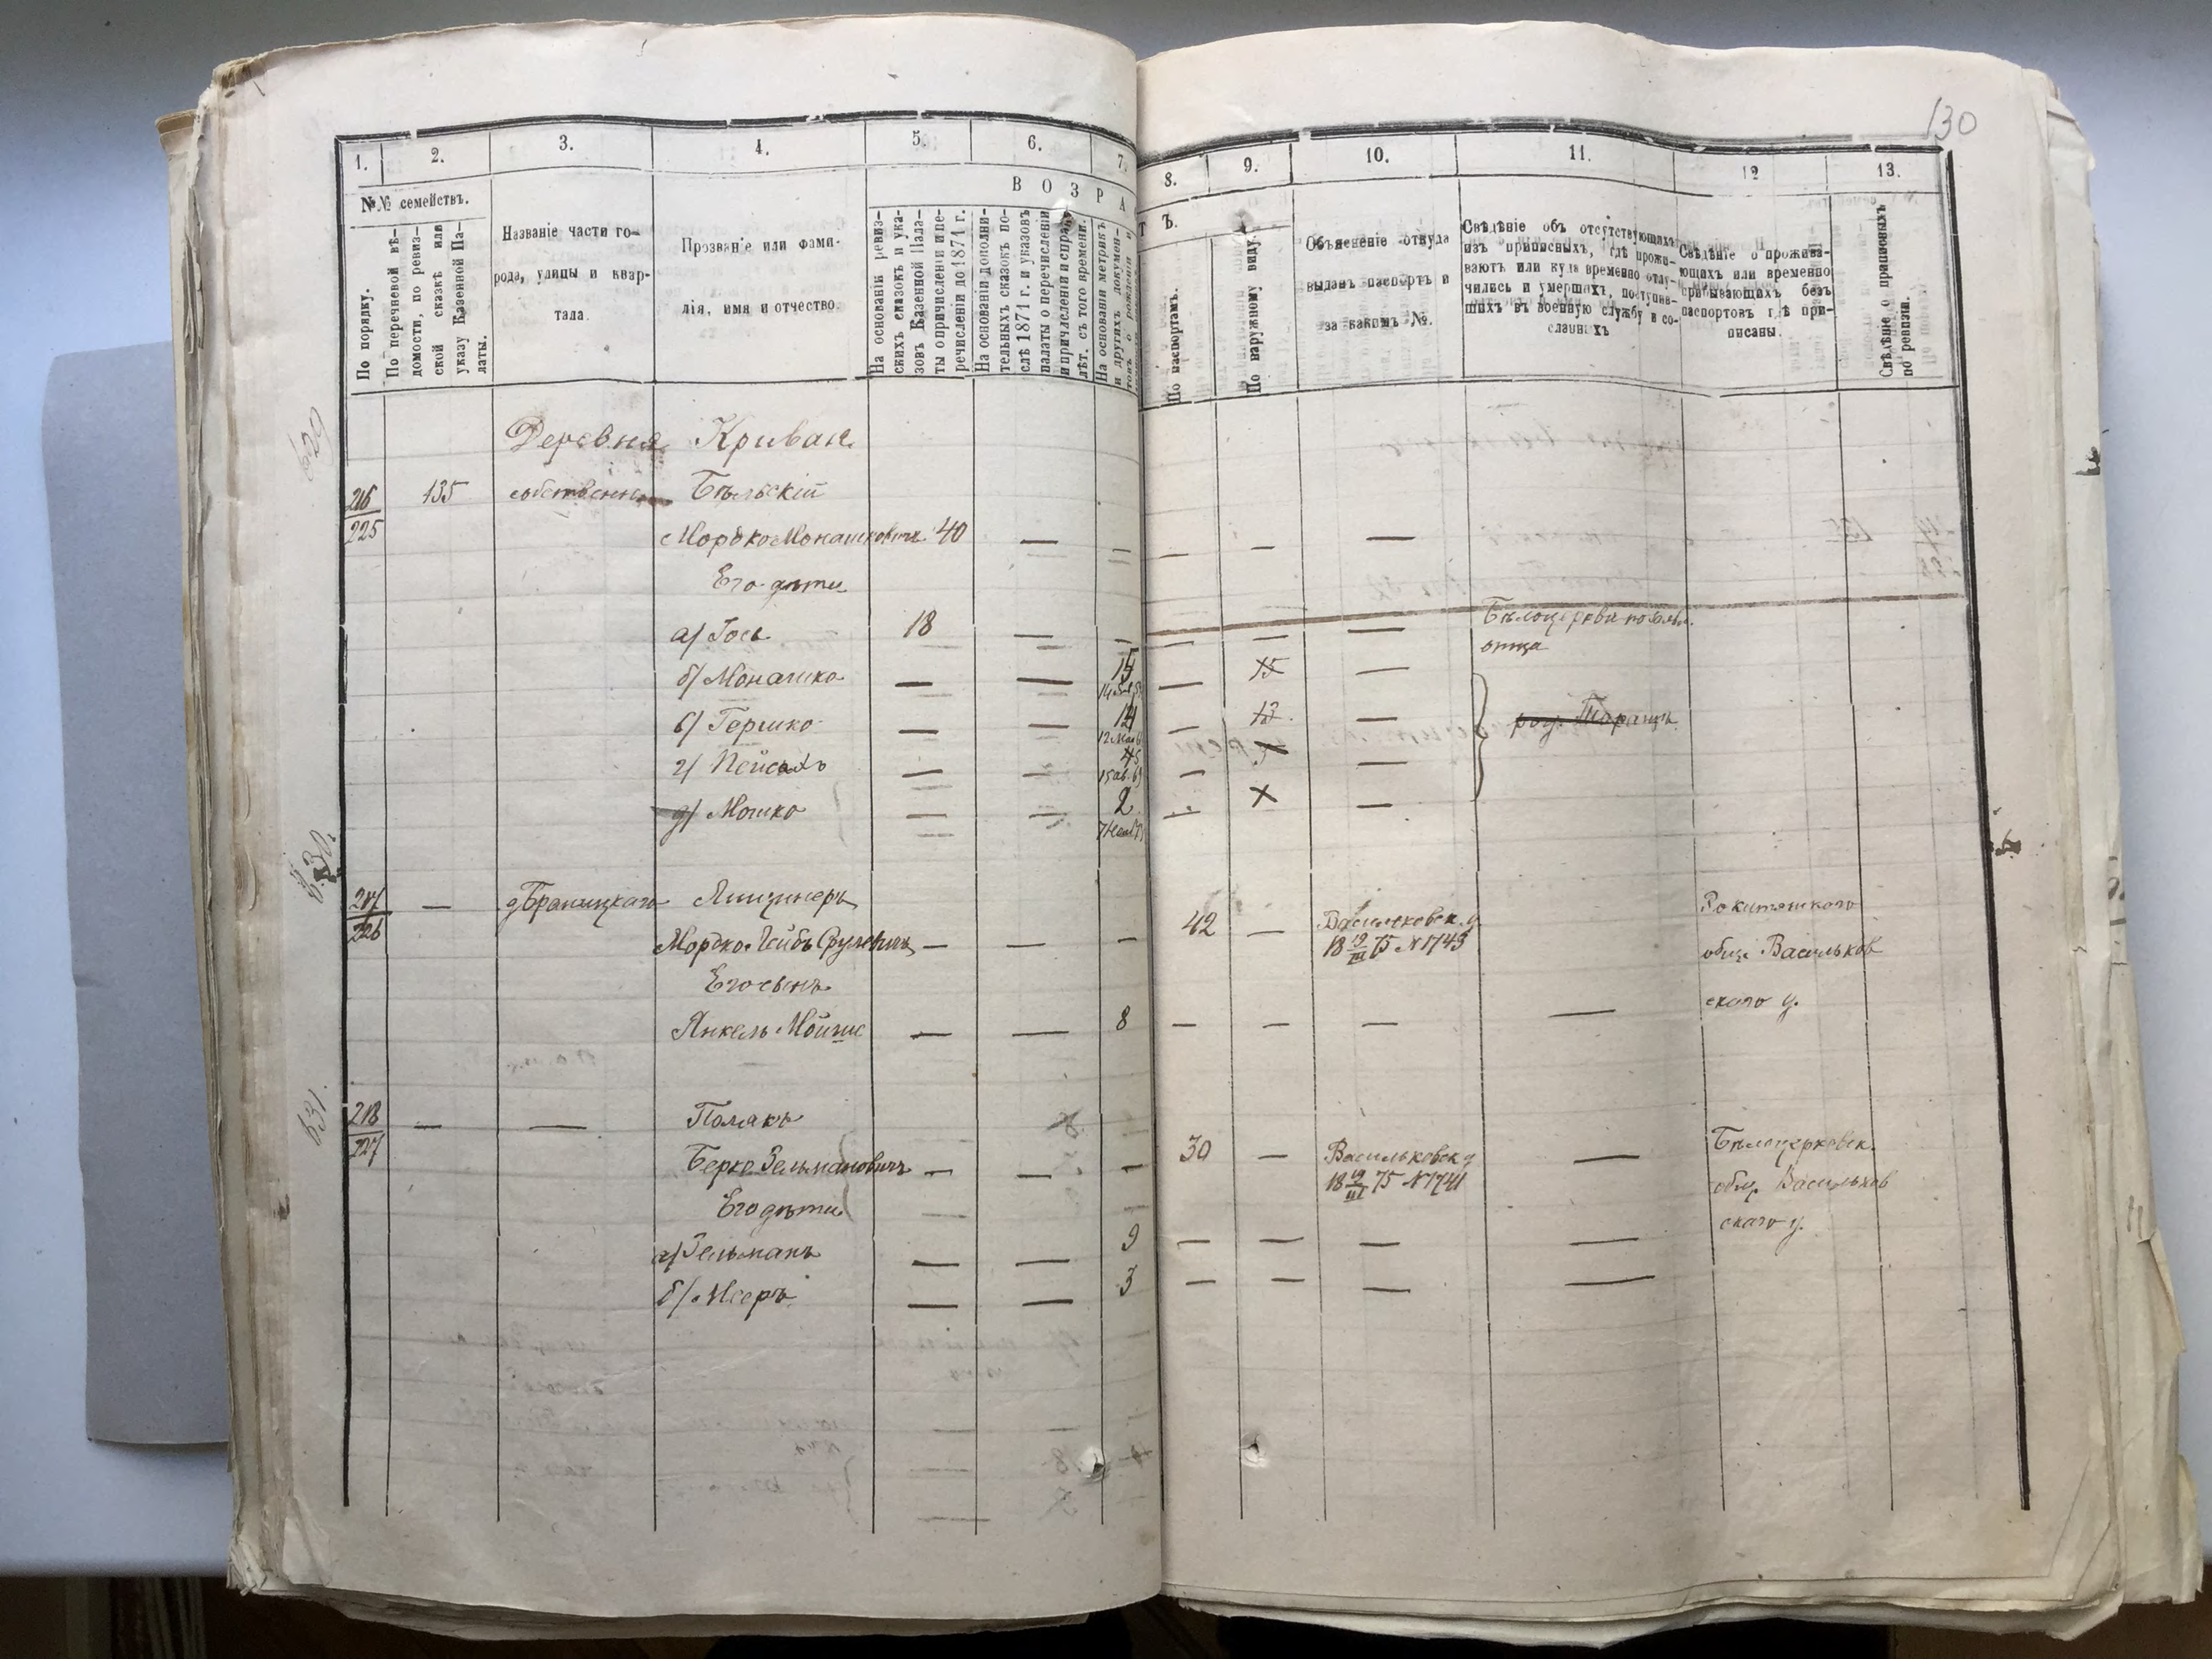 130
1. 2. 3. 4. 5. 6. 7. 8. 9. 10. 11. 12 13.
№№ семействъ.
По порядку.
По перечневой вѣ-
домости, по ревиз-
ской сказкѣ или
указу Казенной Па-
латы.
Названіе части го-
рода, улицы и квар-
тала.
Прозваніе или фами-
лія, имя и отчество.
ВОЗРА
ТЪ.
На основаніи ревиз-
скихъ сказокъ и ука-
зовъ Казенной Пала-
ты о причисленіи и пе-
речисленіи до 1871 г.
На основаніи дополни-
тельныхъ сказокъ по-
слѣ 1871 г. и указовъ
палаты о перечисленіи
и причисленіи и справ.
лѣт. съ того времени.
На основаніи метрикъ
и другихъ докумен-
товъ о рожденіи и
По паспортамъ.
По наружному виду.
Объясненіе откуда
выданъ паспортъ и
за какимъ №.
Свѣдѣніе объ отсутствующихъ
изъ приписныхъ, гдѣ прожи-
ваютъ или куда временно отлу-
чились и умершихъ, поступив-
шихъ въ военную службу и со-
сланныхъ
Свѣдѣніе о прожива-
ющихъ или временно
прибывающихъ безъ
паспортовъ гдѣ при-
писаны.
Свѣдѣніе о приписныхъ
по ревизіи.
629
Деревня Кривая
216 135 Бѣльскій
225 Мордко Монашковичъ 40 — — — — —
Его дѣти
а) Гось 18 — — — — —
отца
б) Монашко — — 15 — 15 —
в) Гершко — — 14 — 13 —
г) Пейсахъ — — — —
д) Мошко — — 2 —
630.
217 —
226 Мордко Лейбъ Срулевичъ — — — 42 — Васильковск. у.
18 19/III 75 №1743
Рокитянского
общ. Васильков
ского у.
Его сынъ
Янкель Мойше — — 8 — — — —
631.
218 — — Полякъ
227 Берко Зельмановичъ — — — 30 — Васильковск у —
18 19/III 75 №1741
Бѣлоцерковск.
общ. Васильков
ского у.
Его дѣти
а) Зельманъ — — 9 — — — —
б) Мееръ — — 3 — — — —